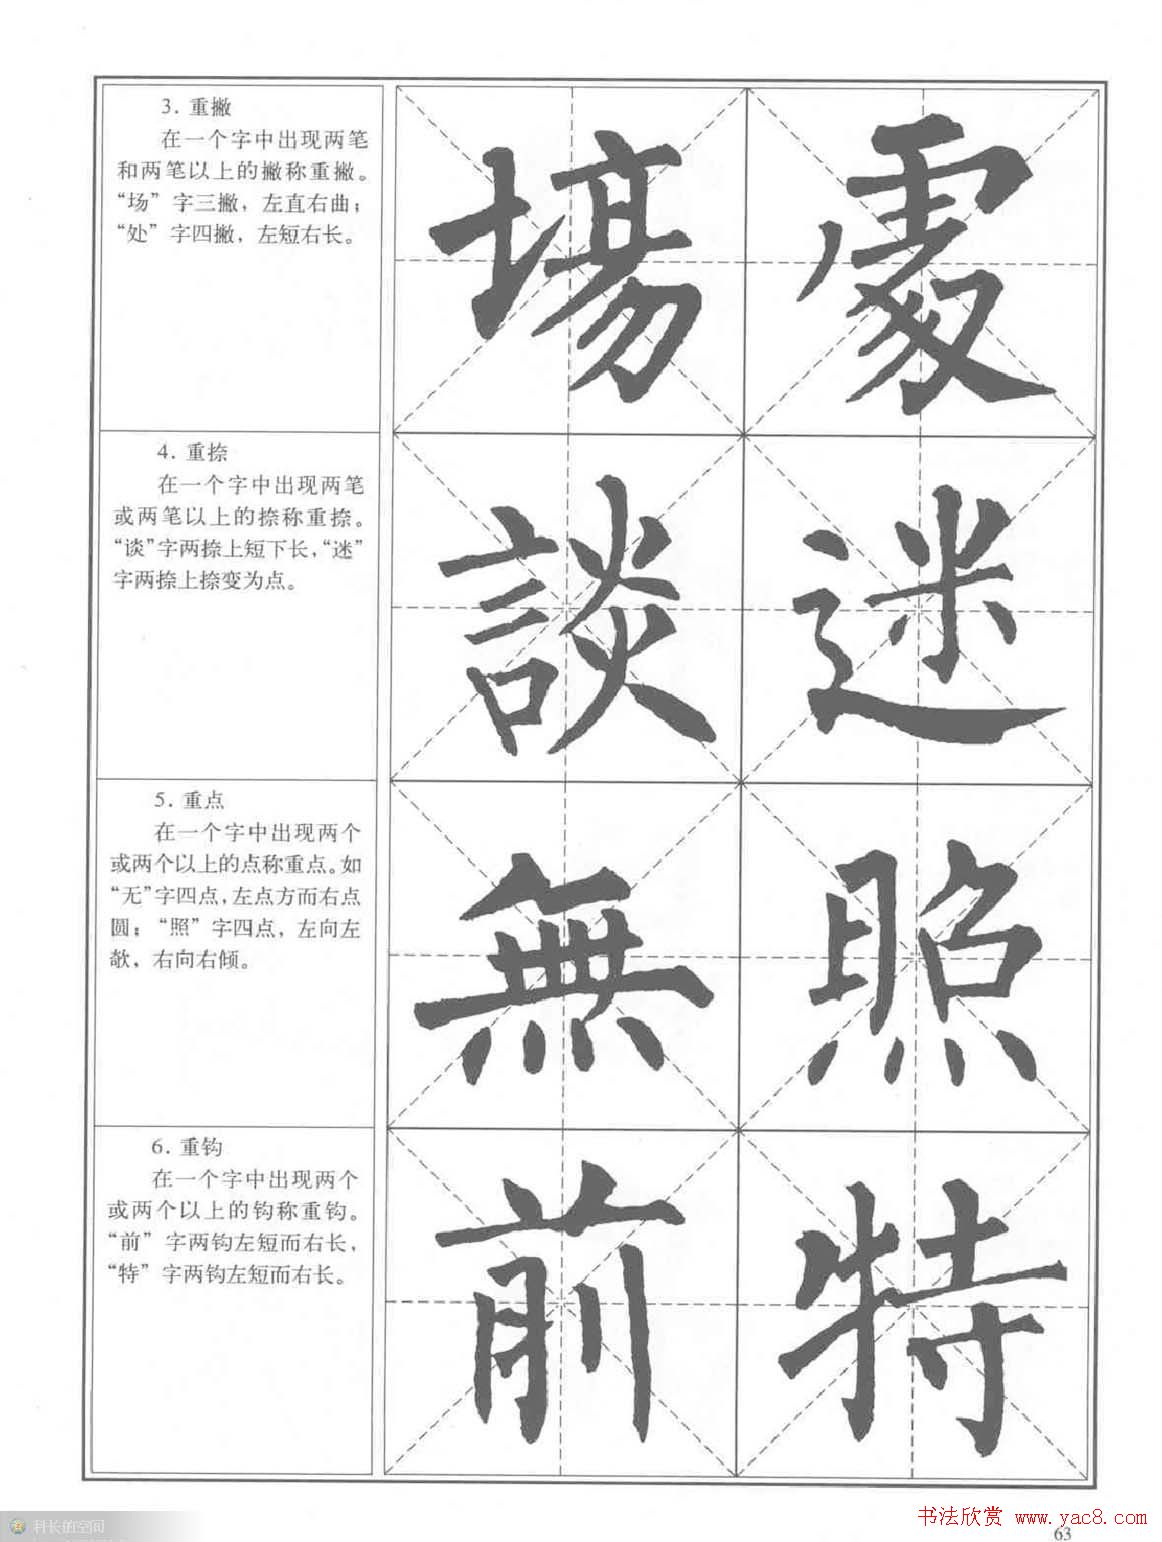 3. 重撇
在一个字中出现两笔
和两笔以上的撇称重撇。
“场”字三撇，左直右曲；
“处”字四撇，左短右长。
場處
4. 重捺
在一个字中出现两笔
或两笔以上的捺称重捺。
“谈”字两捺上短下长，“迷”
字两捺上捺变为点。
談迷
5. 重点
在一个字中出现两个
或两个以上的点称重点。如
“无”字四点，左点方而右点
圆；“照”字四点，左向左
欹，右向右倾。
無照
6. 重钩
在一个字中出现两个
或两个以上的钩称重钩。
“前”字两钩左短而右长，
“特”字两钩左短而右长。
前特
科长的空间
书法欣赏 www.yac8.com
63